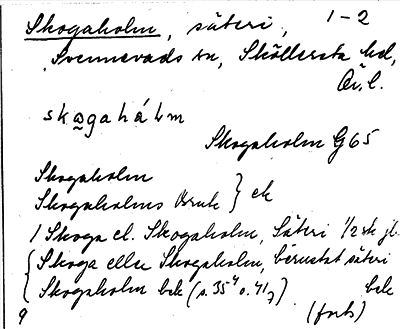 Skogaholm, säteri, 1-2
Svennevads sn, Sköllersta hd,
Ör. l.
skogahálm
Skogaholm G65
Skogaholm
Skogaholms Bruk } ek
1 Skoga el. Skogaholm, Säteri 1/2 sk jb
Skoga eller Skogaholm, berustat säteri
Skogaholm bek (s. 35⁴ o. 41₇) bek
9 (forts)